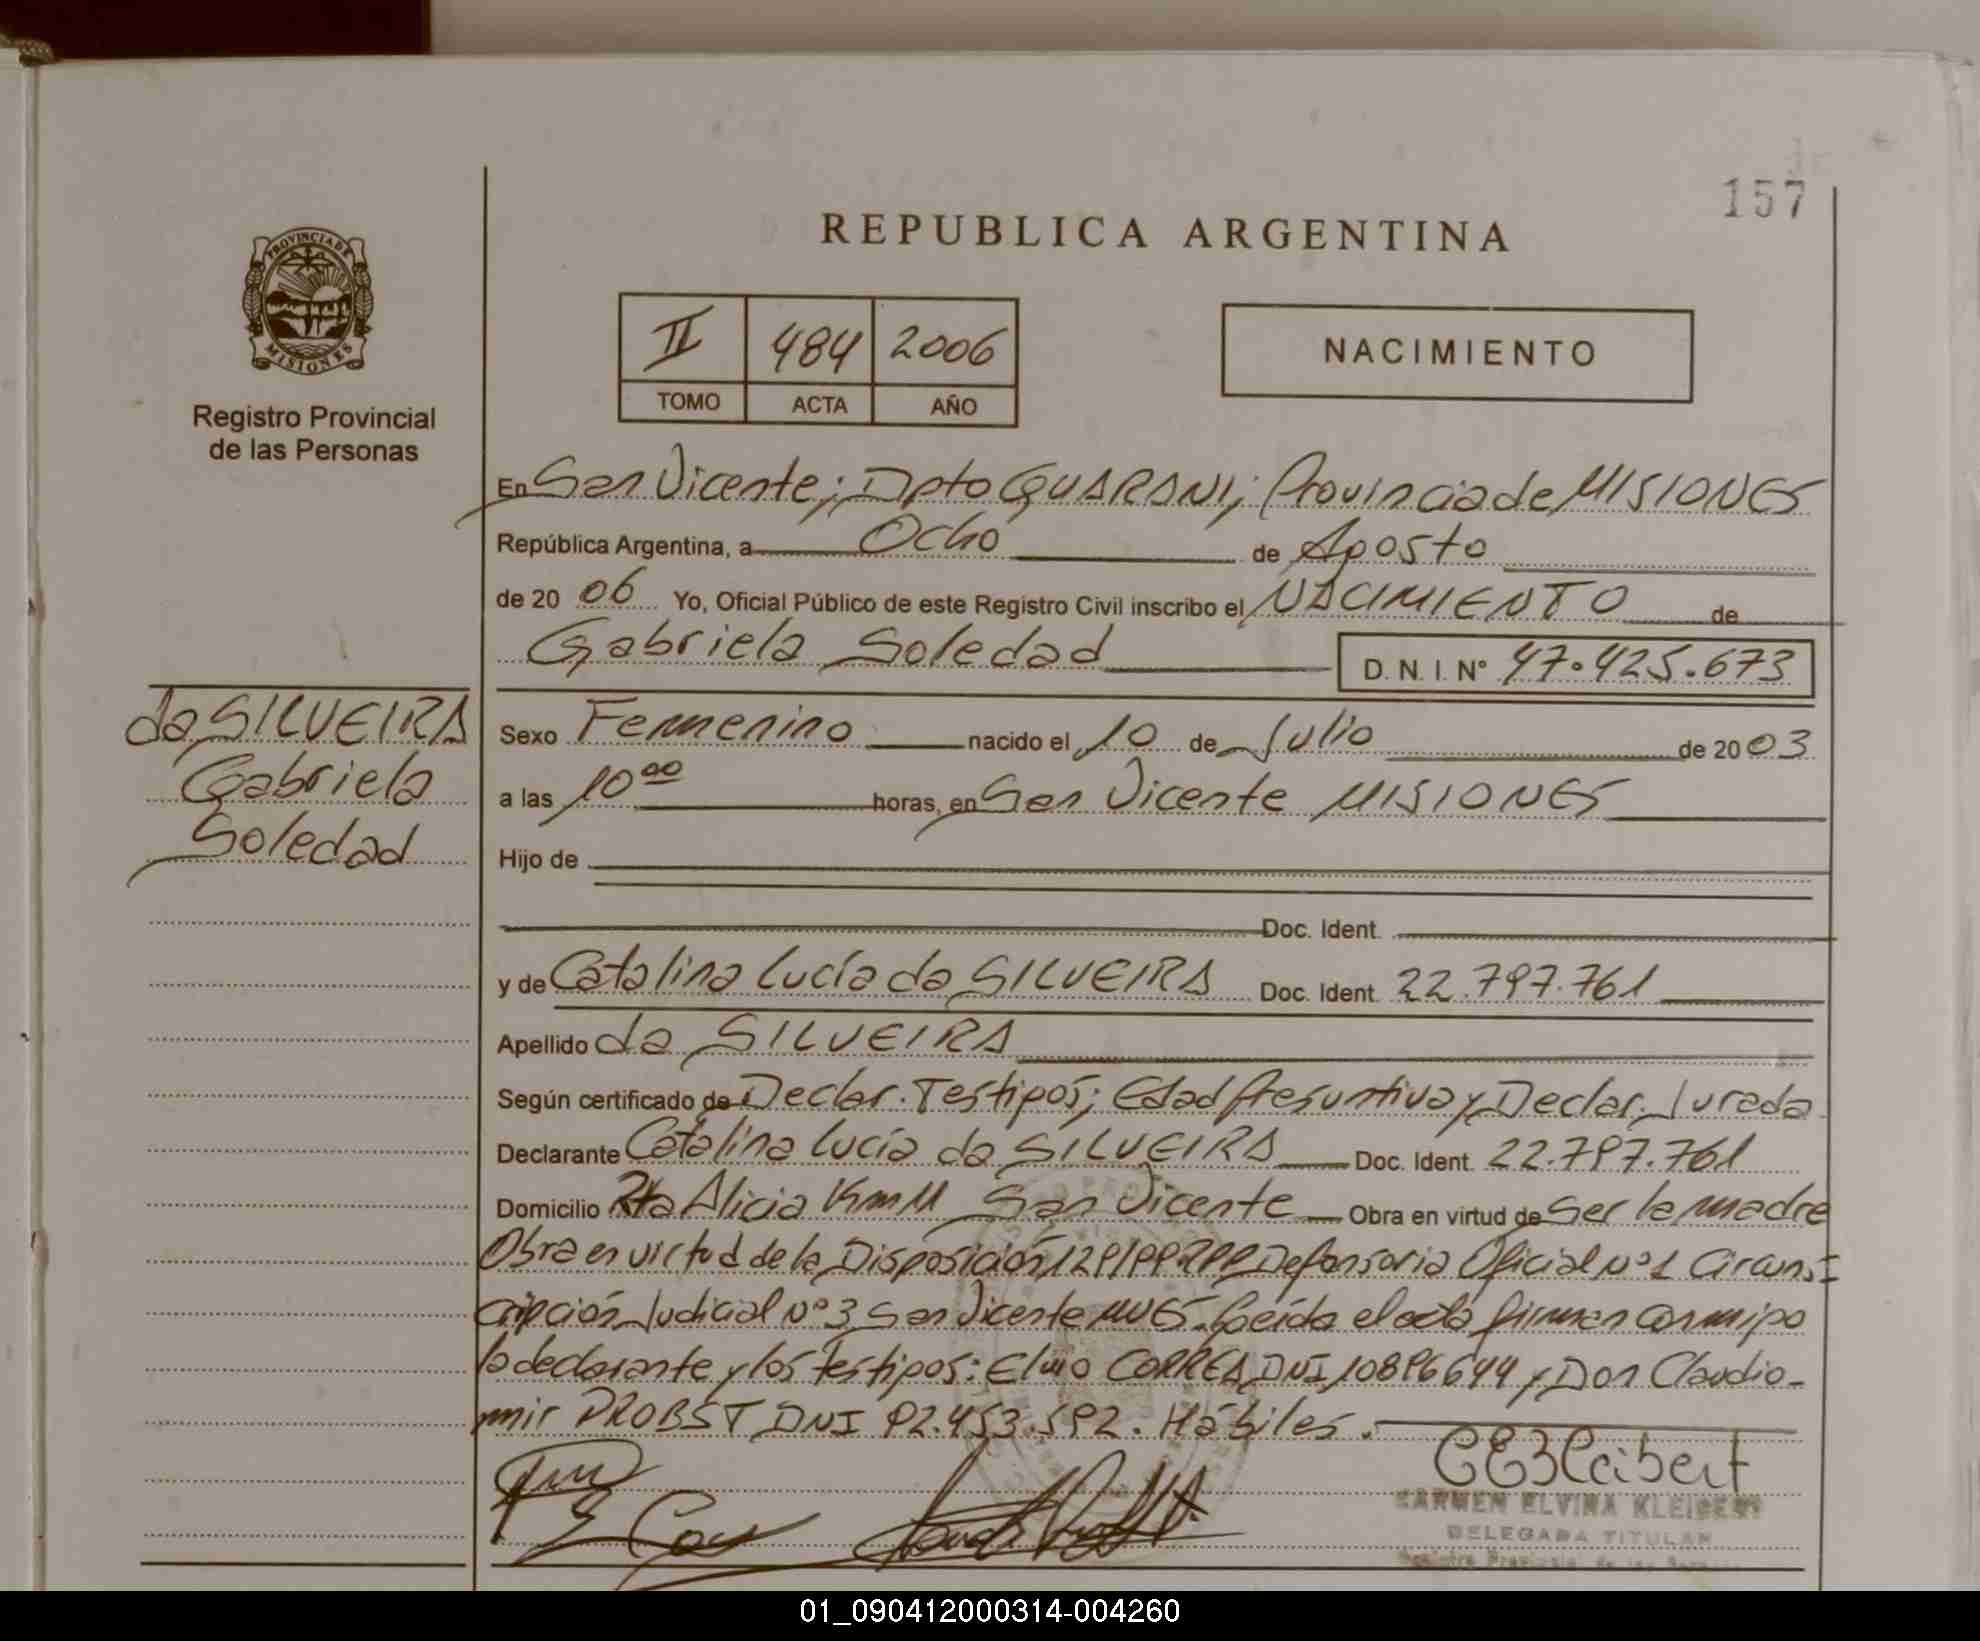 157
REPUBLICA ARGENTINA
PROVINCIA DE
MISIONES
Registro Provincial
de las Personas
II 484 2006
TOMO ACTA AÑO
NACIMIENTO
En San Vicente; Dpto GUARANI; Provincia de MISIONES
República Argentina, a Ocho de Agosto
de 20 06 Yo, Oficial Público de este Registro Civil inscribo el NACIMIENTO de
Gabriela Soledad D. N. I. Nº 47.425.673
da SILVEIRA
Gabriela
Soledad
Sexo Femenino nacido el 10 de Julio de 20 03
a las 10 00 horas, en San Vicente MISIONES
Hijo de
Doc. Ident.
y de Catalina Lucía da SILVEIRA Doc. Ident. 22.797.761
Apellido da SILVEIRA
Según certificado de Declar. Testigos; Edad Presuntiva y Declar. Jurada
Declarante Catalina Lucía da SILVEIRA Doc. Ident. 22.797.761
Domicilio Rta Alicia Km 11 San Vicente Obra en virtud de Ser la madre
Obra en virtud de la Disposición Defensoria Oficial Nº 1 Circuns=
cripción Judicial Nº 3 San Vicente MNES. Leída el acta firman conmigo
la declarante y los Testigos: Elvio CORREA DNI 10896644 y Don Claudio-
mir PROBST DNI 92.453.592. Hábiles.
CEKleibert
CARMEN ELVINA KLEIBERT
DELEGADA TITULAR
Registro Provincial de las
01_090412000314-004260